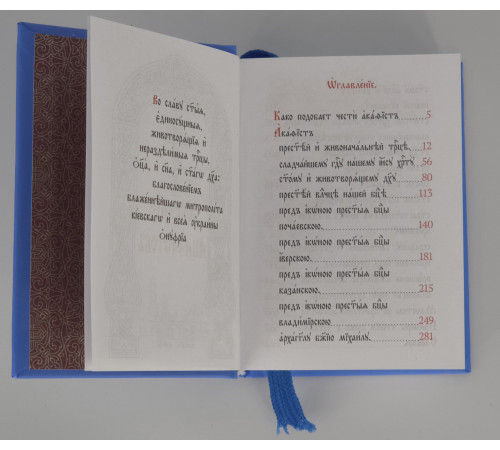 Во сла́вꙋ ст҃ы́ѧ,
є҆диносꙋ́щныѧ,
животворѧ́щїѧ и҆
нераздѣли́мыѧ трⷪ҇цы,
ѻ҆ц҃а̀, и҆ сн҃а, и҆ ст҃а́гѡ дх҃а:
благослове́нїемъ
блаже́ннѣйшагѡ митрополі́та
кі́евскагѡ и҆ всеѧ̀ ᲂу҆краи́ны
ѻ҆нꙋ́фрїа
Ѡ҆главле́нїе.
Ка́ко подоба́ет че́сти а҆ка́ѳїстъ 5
А҆ка́ѳїстъ
прест҃ѣ́й и҆ живонача́льнѣй трⷪ҇цѣ, 12
сладча́йшемꙋ гдⷭ҇ꙋ на́шемꙋ і҆и҃сꙋ хрⷭ҇тꙋ̀ 56
ст҃о́мꙋ и҆ животворѧ́щемꙋ дх҃ꙋ 80
прест҃ѣ́й влⷣчцѣ на́шей бцⷣѣ 113
предъ і҆кѡ́ною прест҃ы́ѧ бцⷣы
поча́евскою. 140
предъ і҆кѡ́ною прест҃ы́ѧ бцⷣы
і҆́верскою. 181
предъ і҆кѡ́ною прест҃ы́ѧ бцⷣы
каза́нскою. 215
предъ і҆кѡ́ною прест҃ы́ѧ бцⷣы
влади́мїрскою 249
а҆рха́гг҃лꙋ бж҃їю мїхаи́лꙋ. 281